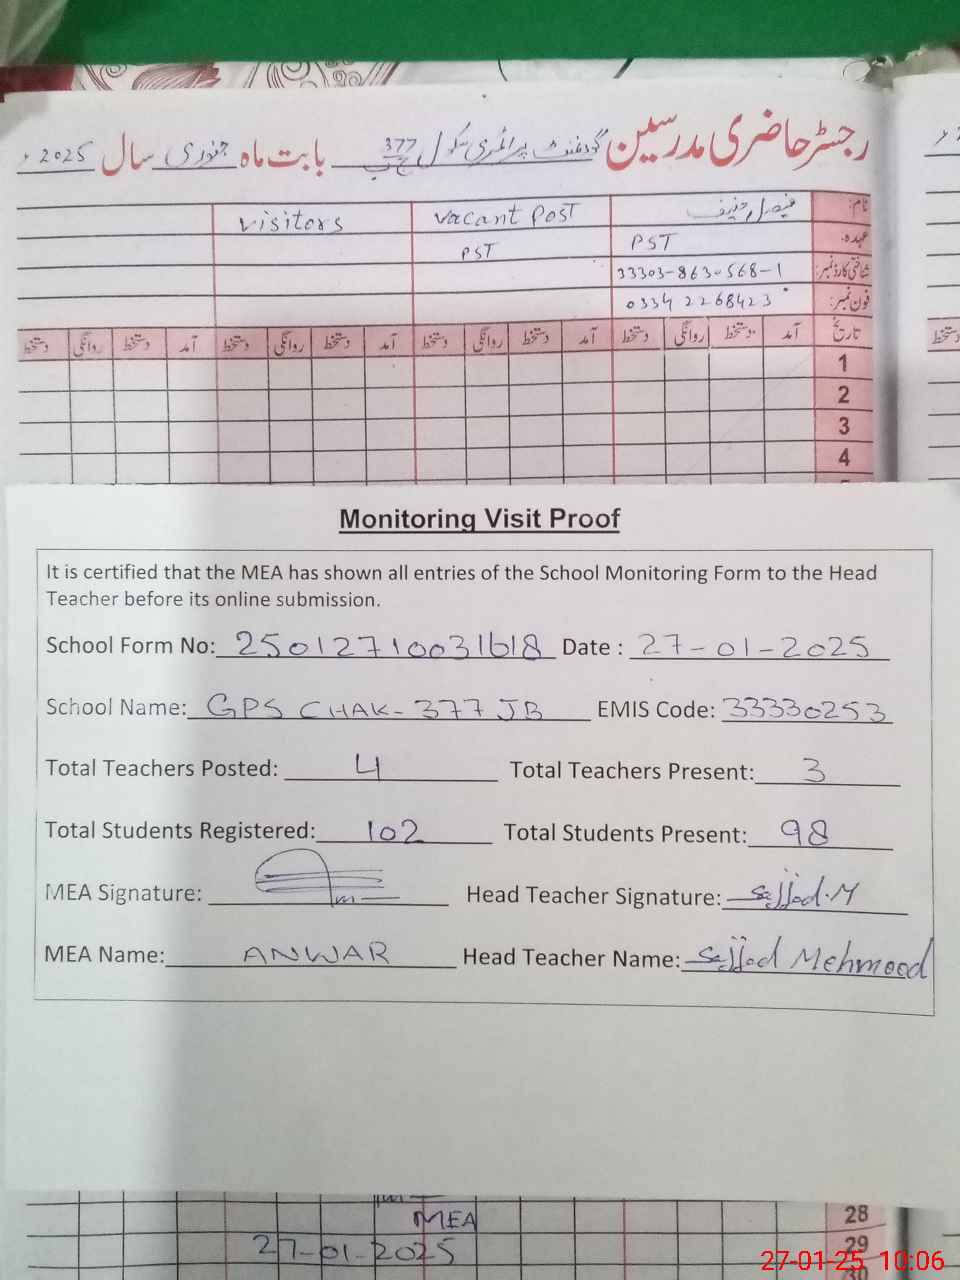 رجسٹر حاضری مدرسین گورنمنٹ پرائمری سکول 377 ج ب بابت ماہ جنوری سال 2025ء
نام: فیصل حنیف Vacant Post Visitors
عہدہ: PST PST
شناختی کارڈ نمبر: 33303-8630568-1
فون نمبر: 0334 2268423
تاریخ آمد دستخط روانگی دستخط آمد دستخط روانگی دستخط آمد دستخط روانگی دستخط آمد دستخط روانگی دستخط
1
2
3
4
Monitoring Visit Proof
It is certified that the MEA has shown all entries of the School Monitoring Form to the Head
Teacher before its online submission.
School Form No: 25012710031618 Date : 27-01-2025
School Name: GPS CHAK-377 JB EMIS Code: 33330253
Total Teachers Posted: 4 Total Teachers Present: 3
Total Students Registered: 102 Total Students Present: 98
MEA Signature: Head Teacher Signature: Sajjad.M
MEA Name: ANWAR Head Teacher Name: Sajjad Mehmood
MEA 28
27-01-2025 29
30
27-01-25 10:06